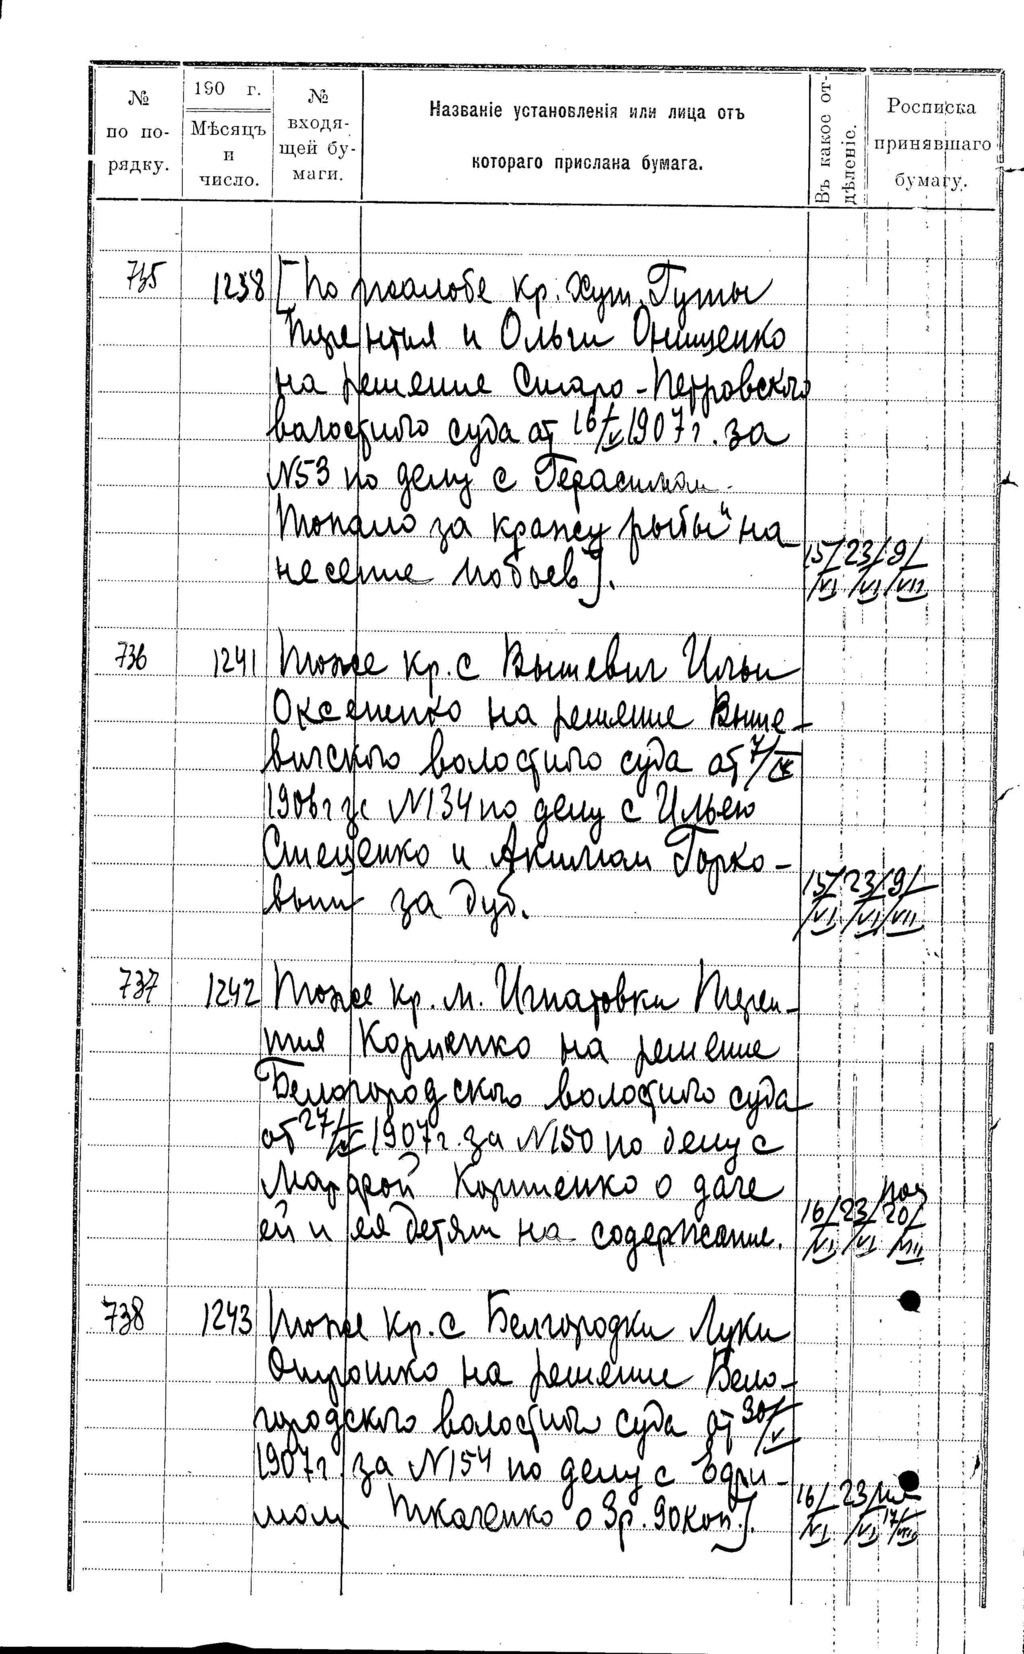 № по по-рядку.
190 г. Мѣсяцъ и число.
№ входя-щей бу-маги.
Названіе установленія или лица отъ
котораго прислана бумага.
Въ какое от-дѣленіе.
Росписка принявшаго бумагу.
735 1238 [По жалобе кр. Хут. Гуты
Терентия и Ольги Онищенко
на решение Старо-Петровского
волостного суда от 16/V 1907 г. за
N53 по делу с Герасимом
Топало за кражу рыбы "на
несение побоев].
15/VI 23/VI 9/VII
736 1241 Тоже кр. с Вышевич Ильи
Оксененко на решение Выше-
вичского волостного суда от 7/IX
1906 г за N134 по делу с Ильею
Стеценко и Акимом Горко-
вым за дуб.
15/VI 23/VI 9/VII
737 1242 Тоже кр. м. Игнатовки Терен-
тия Корненко на решение
Белогородского волостного суда
от 27/ 1907 г. за N150 по делу с
Марфой Корниенко о даче
ей и ея детям на содержание.
16/VI 23/VI 20/VII
738 1243 Тоже кр. с Белгородки Луки
Опрошко на решение Бело-
городского волостного суда от 30/V
1907 г за N154 по делу с Ефри-
мом Ткаченко о 3 р. 90 коп].
16/VI 23/VI 17/VIII